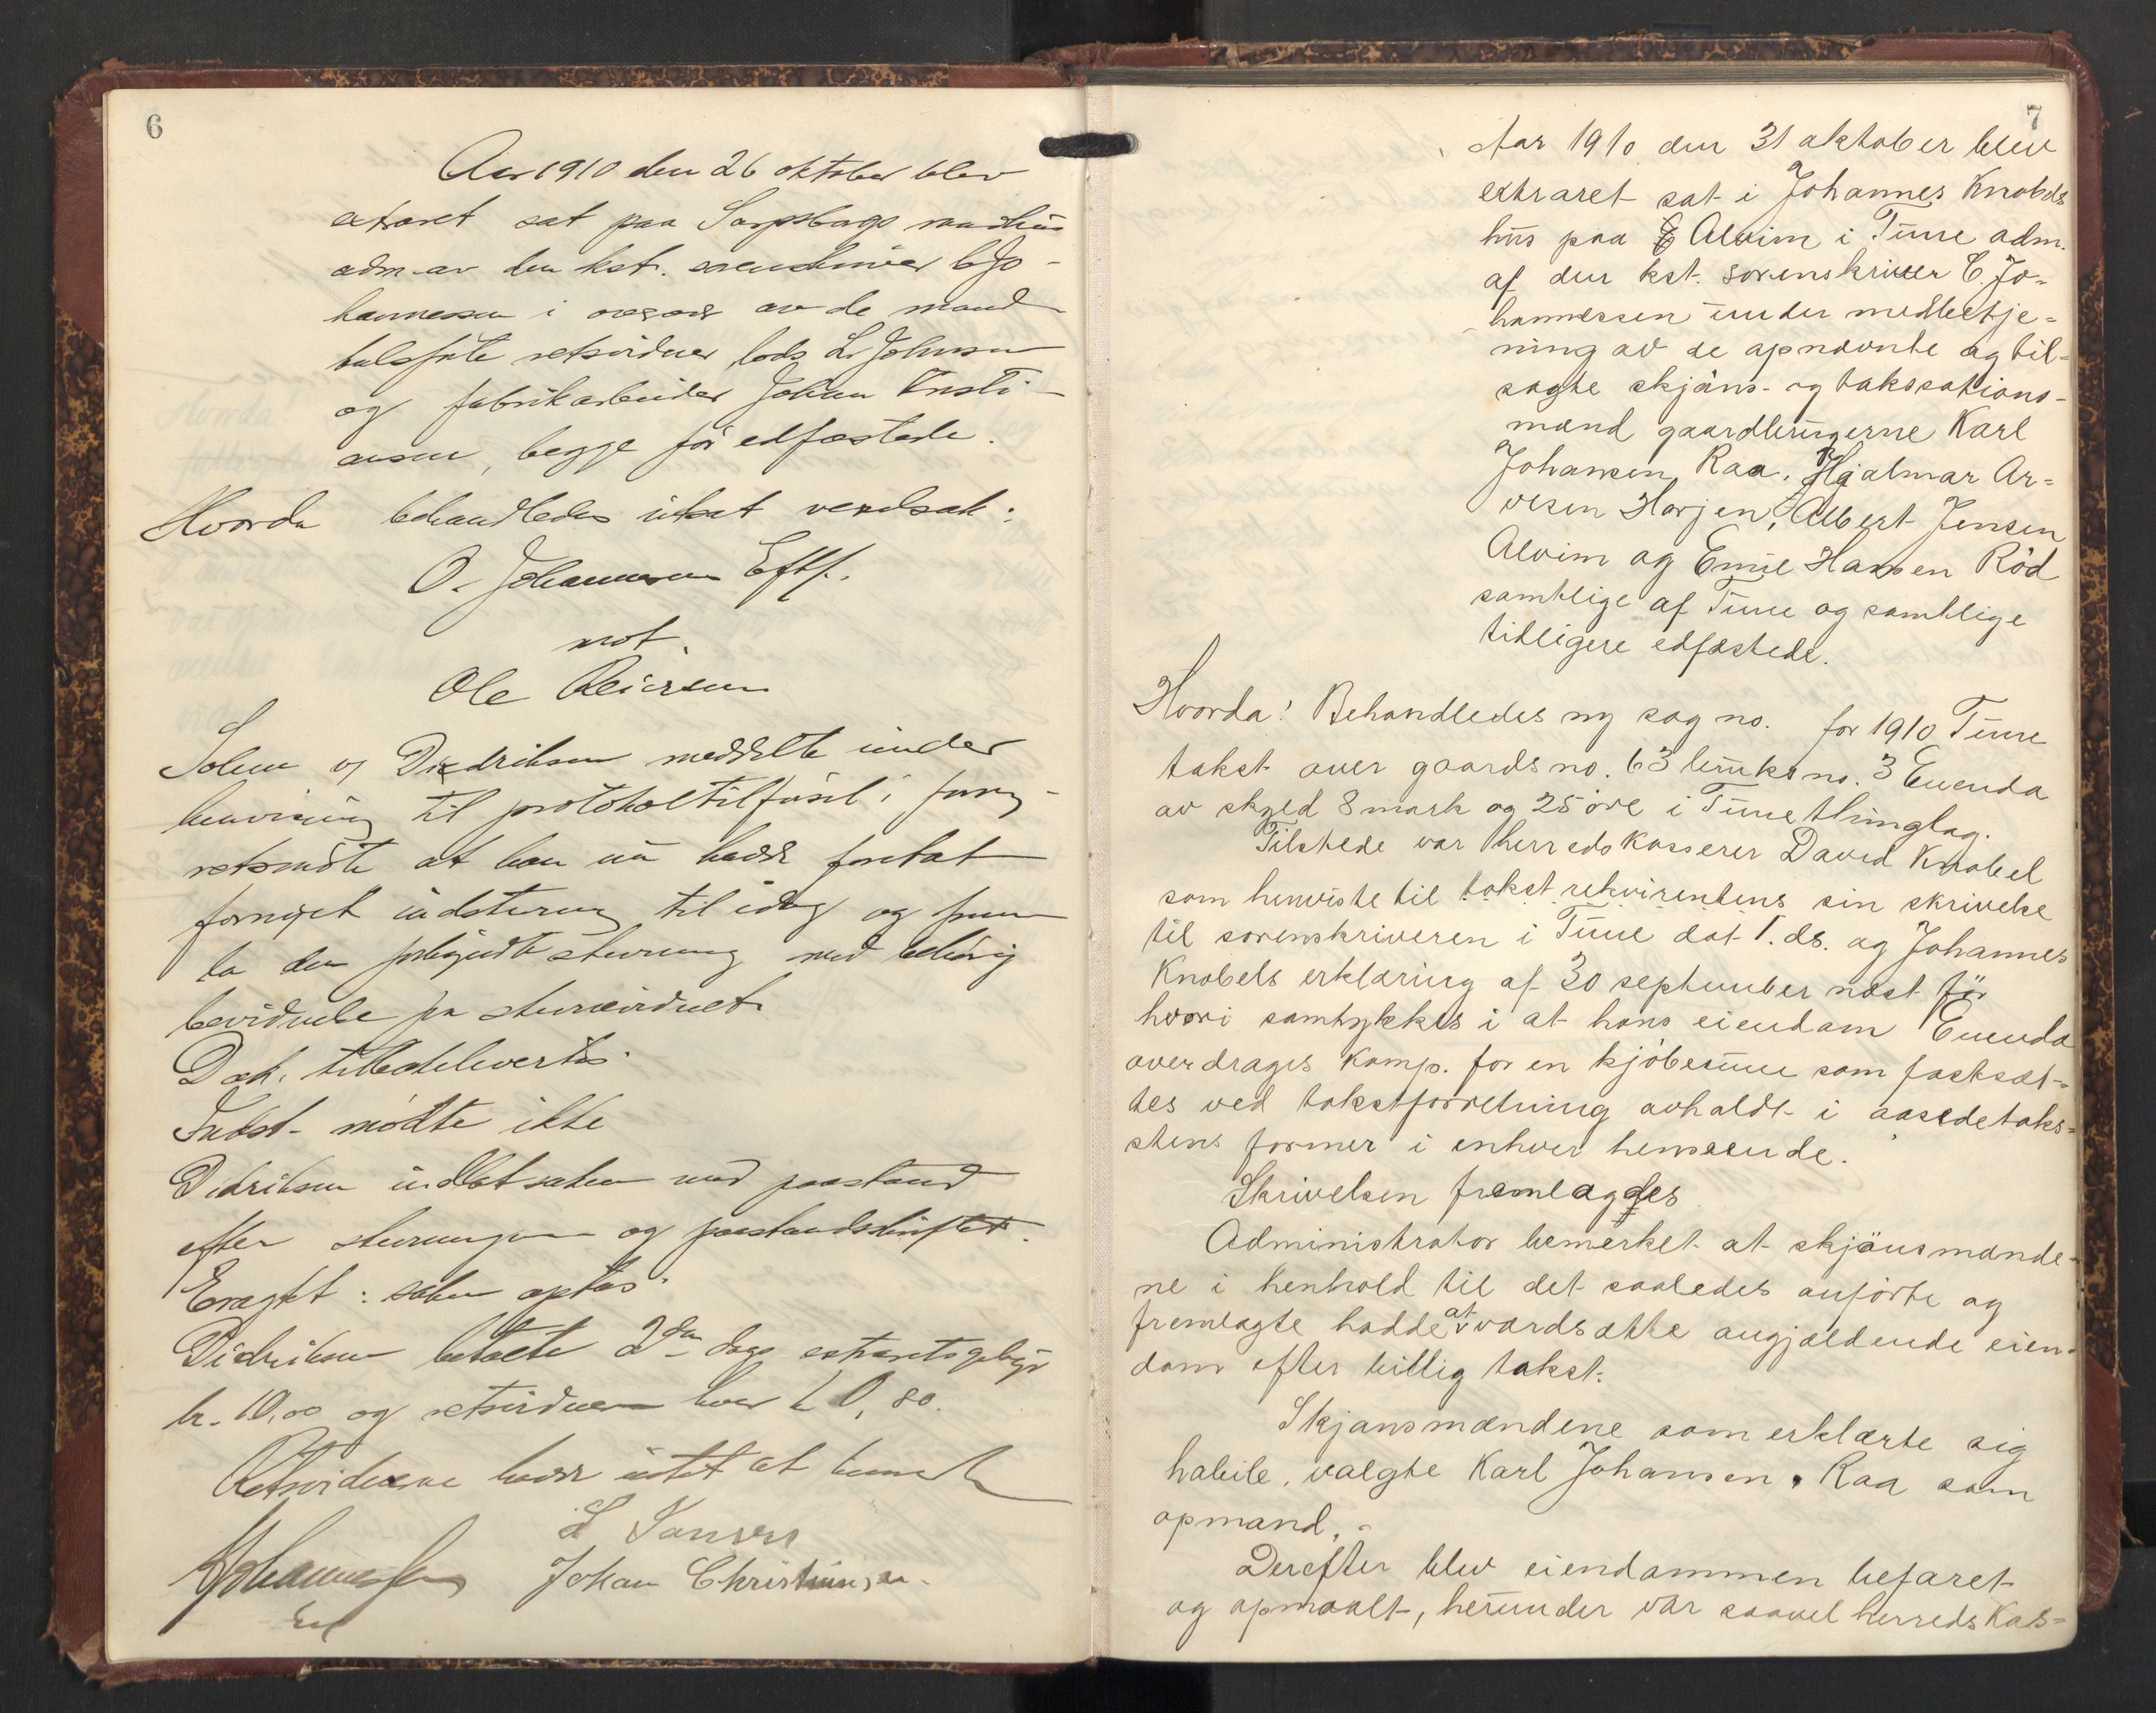 6
Aar 1910 den 26 oktober blev
extraret sat paa Sarpsborgs raadhus
adm. av den kst. sorenskriver C. Jo-
hannessen i overvær av de mand-
talsførte retsvidner, lods L. Johnsen
og fabrikarbeider Johan Kristi-
ansen, begge før edfæstede.
Hvorda behandledes utsat vexelsak:
O. Johannesens Eftf.
mot
Ole Reiersen
Solem og Diedriksen meddelte under
henvisning til protokoltilførsel i forrige
retsmøte at han nu hadde foretat
fornyet indstevning til idag og frem-
la den paabegyndte stevning med behørig
bevidnelse fra stevnevidnet.
Dok. tilbakelevertes.
Indst. møtte ikke
Didriksen indlot saken med paastand
efter stevningen og paastandsskriftet.
Eragtet: saken optas.
Didriksen betalte 2den dags extraretsgebyr
kr. 10,00 og retsvidnerne hver kr 0,80.
Retsvidnerne hadde intet at bemerke
L Jansen
Johannessen Johan Christiansen
7
Aar 1910 den 31 oktober blev
extraret sat i Johannes Knobels
hus paa Alvim i Tune adm.
af den kst. sorenskriver C. Jo=
hannessen under medbetje=
ning av de opnævnte og til=
sagte skjøns- og taksations=
mænd gaardbrugerne Karl
Johansen, Raa, Hjalmar Ar=
vesen Horjen, Albert Jensen
Alvim og Emil Hansen Röd
samtlige af Tune og samtlige
tidligere edfæstede.
Hvorda! Behandledes ny sag no. for 1910 Tune
takst over gaards no. 63 bruks no. 3 Enenda
av skyld 8 mark og 25 øre i Tune thinglag.
Tilstede var herredskasserer David Knobel
som henviste til takst rekvirentens sin skrivelse
til sorenskriveren i Tune dat 1. ds. og Johannes
Knobels erklæring af 30 september næst før
hvori samtykkes i at hans eiendom Enenda
overdrages Komp. for en kjøbesum som fastsæt=
tes ved takstforretning avholdt i aasædetaks=
stens former i enhver henseende.
Skrivelsen fremlagdes
Administrator bemerket at skjønsmænde=
ne i henhold til det saaledes anførte og
fremlagte hadde at værdsætte angjældende eien=
dom efter billig takst.
Skjønsmændene som erklærte sig
habile, valgte Karl Johansen, Raa som
opmand.
Derefter blev eiendommen befaret
og opmaalt, herunder var saavel herredskas=